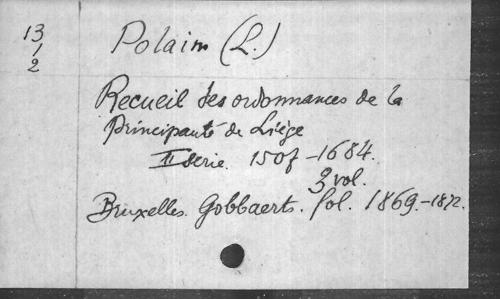 13
1
2
Polain (L.)
Recueil des ordonnances de la
Principauté de Liège
II serie. 1507-1684.
3 vol.
Bruxelles. Gobbaerts. fol. 1869.-1872.